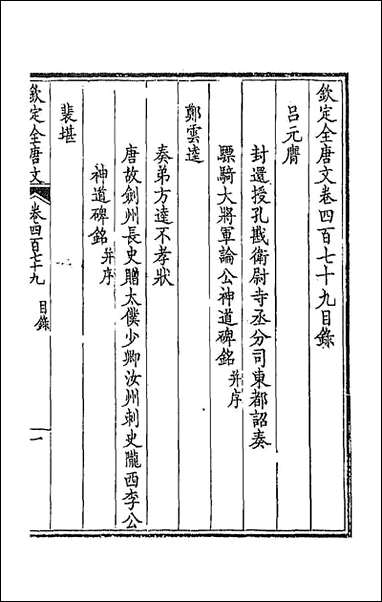 欽定全唐文卷四百七十九目錄
呂元膺
封還授孔戢衛尉寺丞分司東都詔奏
驃騎大將軍論公神道碑銘并序
鄭雲逵
奏弟方逵不孝狀
唐故劍州長史贈太僕少卿汝州刺史隴西李公
神道碑銘并序
裴堪
欽定全唐文 卷四百七十九 目錄 一